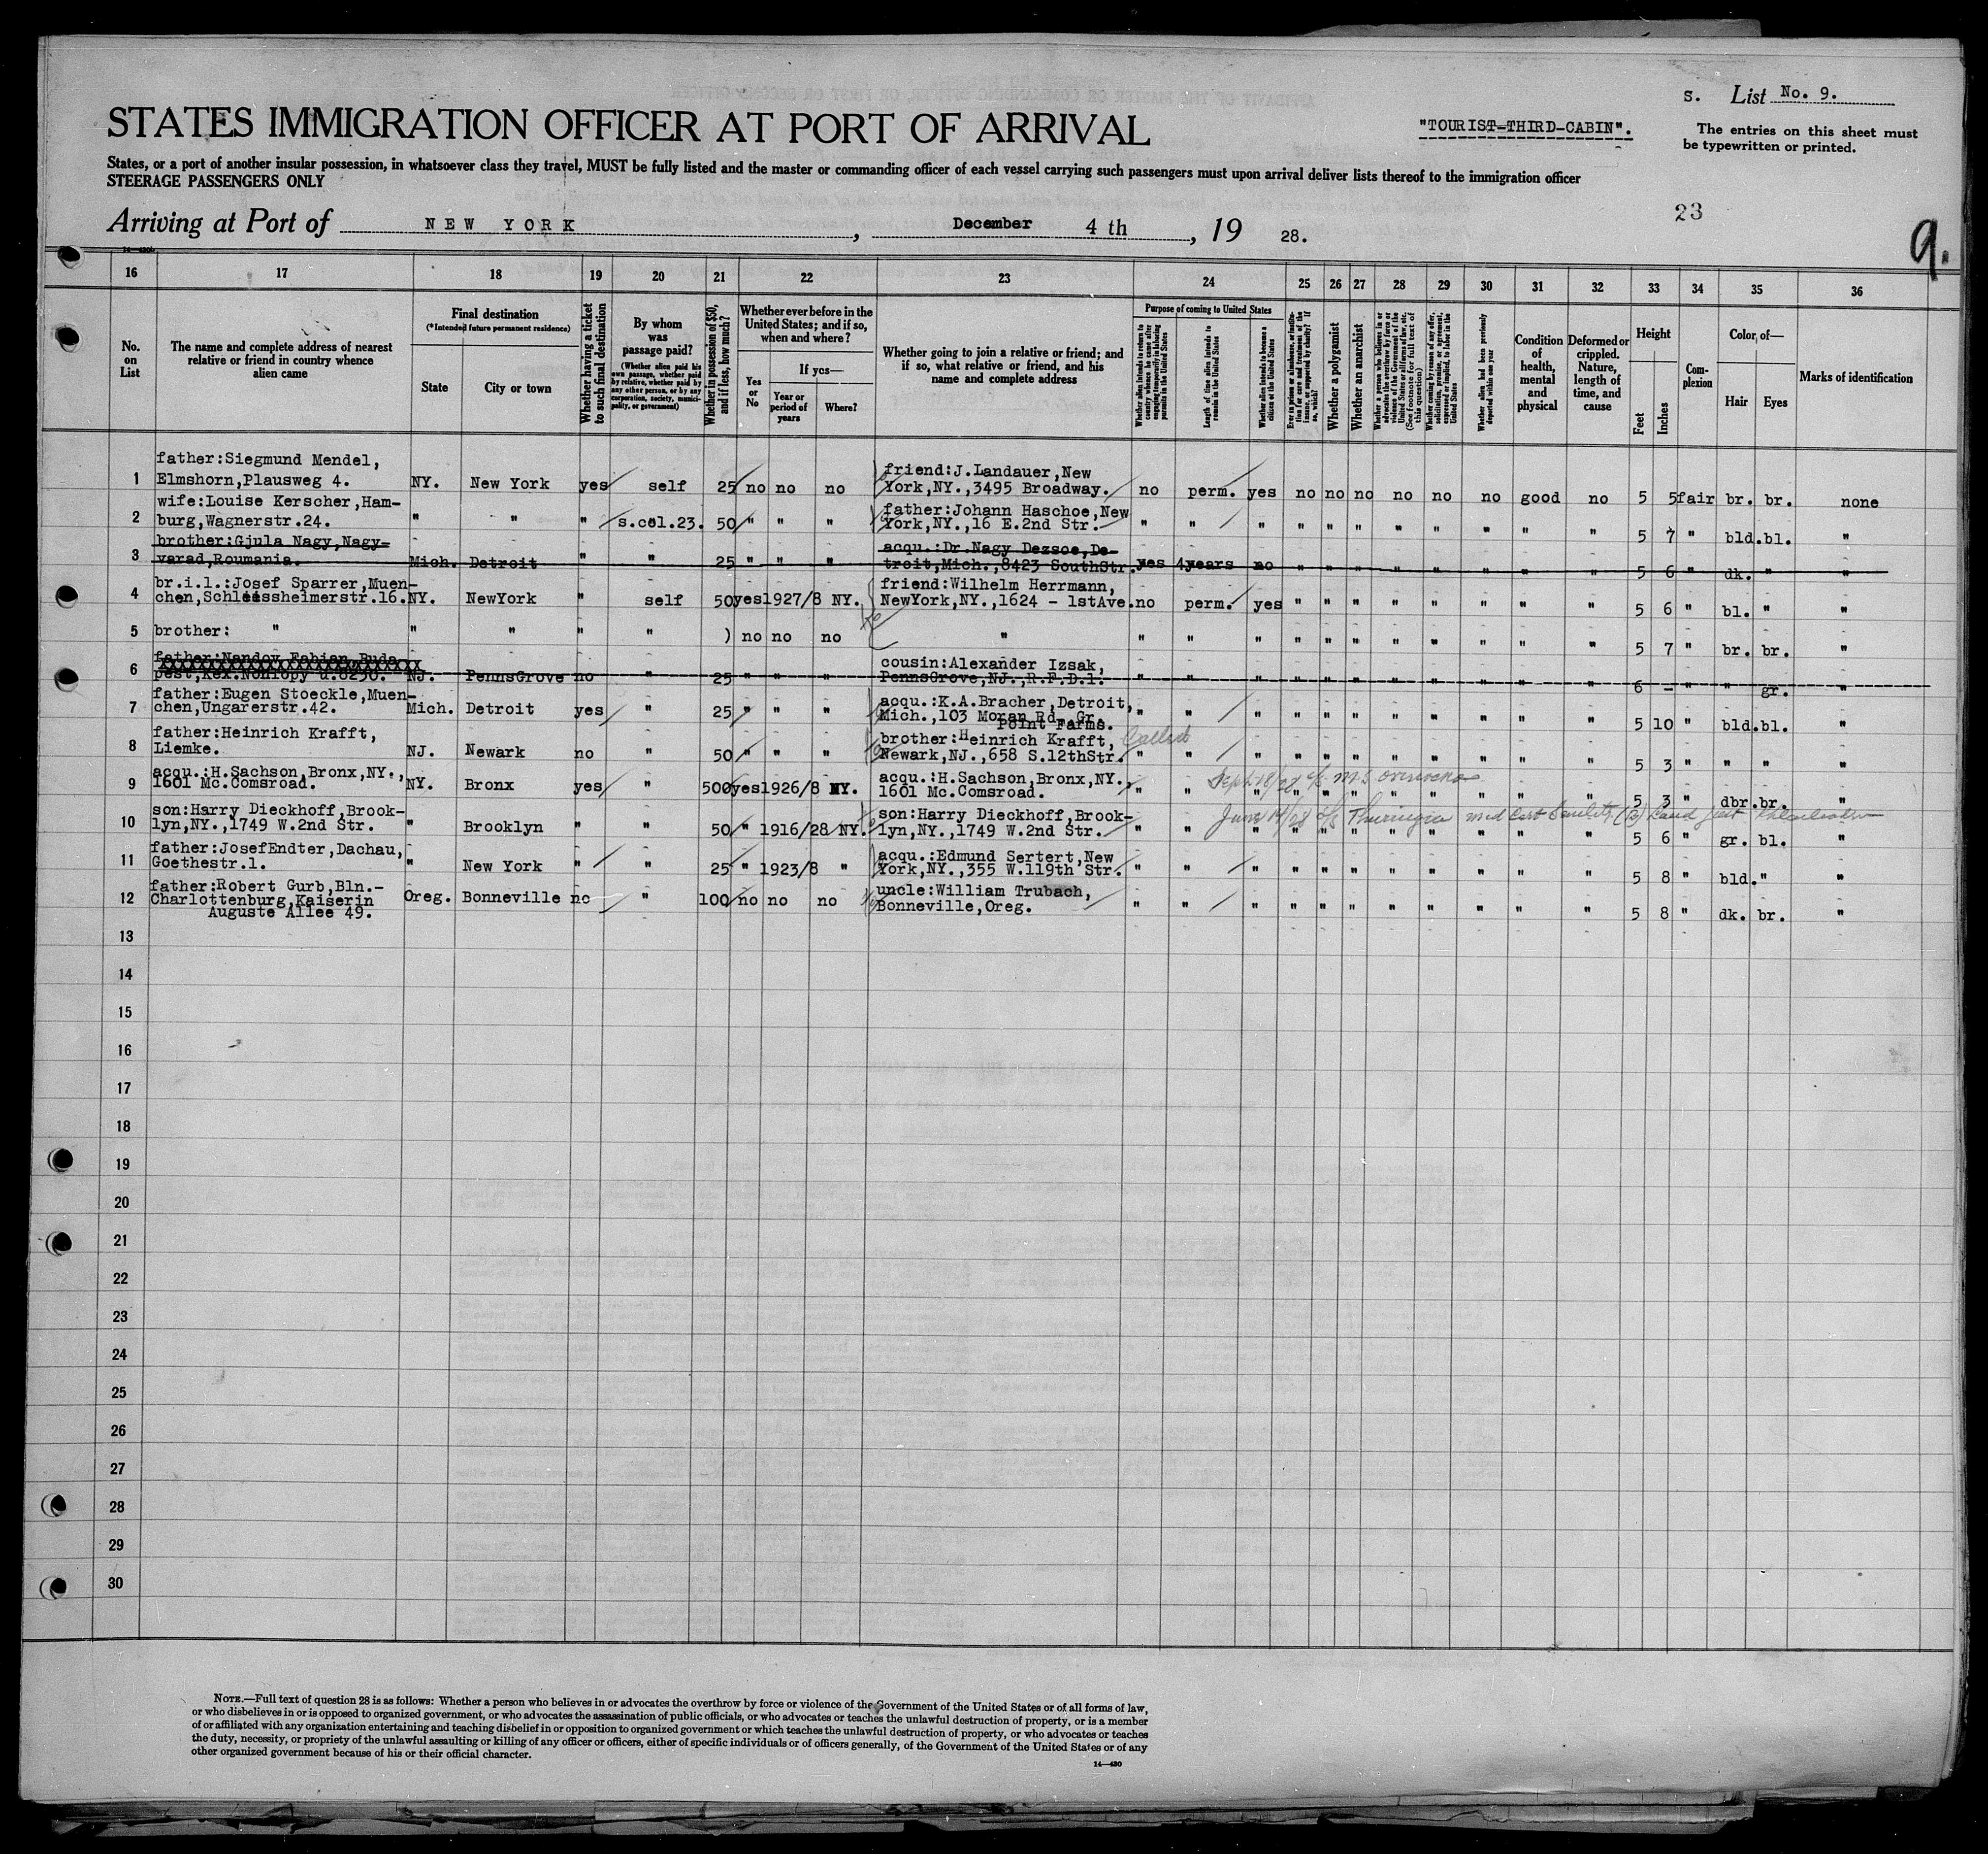 S. List No. 9.
STATES IMMIGRATION OFFICER AT PORT OF ARRIVAL
"TOURIST-THIRD-CABIN".
The entries on this sheet must
be typewritten or printed.
States, or a port of another insular possession, in whatsoever class they travel, MUST be fully listed and the master or commanding officer of each vessel carrying such passengers must upon arrival deliver lists thereof to the immigration officer
STEERAGE PASSENGERS ONLY
23
Arriving at Port of NEW YORK, December 4 th, 19 28.
9.
16 17 18 19 20 21 22 23 24 25 26 27 28 29 30 31 32 33 34 35 36
No. on List
The name and complete address of nearest relative or friend in country whence alien came
Final destination
(*Intended future permanent residence)
State City or town
Whether having a ticket to such final destination
By whom was passage paid?
(Whether alien paid his own passage, whether paid by relative, whether paid by any other person, or by any corporation, society, municipality, or government)
Whether in possession of $50, and if less, how much?
Whether ever before in the United States; and if so, when and where?
Yes or No
If yes—
Year or period of years
Where?
Whether going to join a relative or friend; and if so, what relative or friend, and his name and complete address
Purpose of coming to United States
Whether alien intends to return to country whence he came after engaging temporarily in laboring pursuits in the United States
Length of time alien intends to remain in the United States
Whether alien intends to become a citizen of the United States
Ever in prison or almshouse, or institution for care and treatment of the insane, or supported by charity? If so, which?
Whether a polygamist
Whether an anarchist
Whether a person who believes in or advocates the overthrow by force or violence of the Government of the United States or all forms of law, etc. (See footnote for full text of this question)
Whether coming by reason of any offer, solicitation, promise, or agreement, expressed or implied, to labor in the United States
Whether alien had been previously deported within one year
Condition of health, mental and physical
Deformed or crippled. Nature, length of time, and cause
Height
Feet Inches
Complexion
Color of—
Hair Eyes
Marks of identification
1 father:Siegmund Mendel,
Elmshorn,Plausweg 4. NY. New York yes self 25 no no no friend:J.Landauer,New
York,NY.,3495 Broadway. no perm. yes no no no no no no good no 5 5 fair br. br. none
2 wife:Louise Kerscher,Ham-
burg,Wagnerstr.24. " " " s.col.23. 50 " " " father:Johann Haschoe,New
York,NY.,16 E.2nd Str. " " " " " " " " " " " 5 7 " bld. bl. "
3 brother:Gjula Nagy,Nagy-
varad,Roumania. Mich. Detroit " " 25 " " " acqu.:Dr.Nagy Dezsoe,De-
troit,Mich.,8423 SouthStr. yes 4years no " " " " " " " " 5 6 " dk. " "
4 br.i.l.:Josef Sparrer,Muen-
chen,Schleissheimerstr.16. NY. NewYork " self 50 yes 1927/8 NY. friend:Wilhelm Herrmann,
NewYork,NY.,1624 - 1stAve. no perm. yes " " " " " " " " 5 6 " bl. " "
5 brother: " " " " " ) no no no " " " " " " " " " " " " 5 7 " br. br. "
6 father:Nandov Fabian,Buda-
NJ. PennsGrove no " 25 " " " cousin:Alexander Izsak,
PennsGrove,NJ.,R.F.D.1. " " " " " " " " " " " 6 - " " gr. "
7 father:Eugen Stoeckle,Muen-
chen,Ungarerstr.42. Mich. Detroit yes " 25 " " " acqu.:K.A.Bracher,Detroit,
Mich.,103 Moran Rd. Gr.
Point Farms. " " " " " " " " " " " 5 10 " bld. bl. "
8 father:Heinrich Krafft,
Liemke. NJ. Newark no " 50 " " " brother:Heinrich Krafft,
Newark,NJ.,658 S.12thStr. " " " " " " " " " " " 5 3 " " " "
9 acqu.:H.Sachson,Bronx,NY.,
1601 Mc.Comsroad. NY. Bronx yes " 500 yes 1926/8 NY. acqu.:H.Sachson,Bronx,NY.,
1601 Mc.Comsroad. " " " " " " " " " " " 5 3 " dbr. br. "
10 son:Harry Dieckhoff,Brook-
lyn,NY.,1749 W.2nd Str. " Brooklyn " " 50 " 1916/28 NY. son:Harry Dieckhoff,Brook-
lyn,NY.,1749 W.2nd Str. " " June 14/28 Thuringia 5 6 " gr. bl. "
11 father:JosefEndter,Dachau,
Goethestr.1. " New York " " 25 " 1923/8 " acqu.:Edmund Sertert,New
York,NY.,355 W.119th Str. " " " " " " " " " " " 5 8 " bld. " "
12 father:Robert Gurb,Bln.-
Charlottenburg,Kaiserin
Auguste Allee 49. Oreg. Bonneville no " 100 no no no uncle:William Trubach,
Bonneville,Oreg. " " " " " " " " " " " 5 8 " dk. br. "
13
14
15
16
17
18
19
20
21
22
23
24
25
26
27
28
29
30
NOTE.—Full text of question 28 is as follows: Whether a person who believes in or advocates the overthrow by force or violence of the Government of the United States or of all forms of law,
or who disbelieves in or is opposed to organized government, or who advocates the assassination of public officials, or who advocates or teaches the unlawful destruction of property, or is a member
of or affiliated with any organization entertaining and teaching disbelief in or opposition to organized government or which teaches the unlawful destruction of property, or who advocates or teaches
the duty, necessity, or propriety of the unlawful assaulting or killing of any officer or officers, either of specific individuals or of officers generally, of the Government of the United States or of any
other organized government because of his or their official character.
14—430